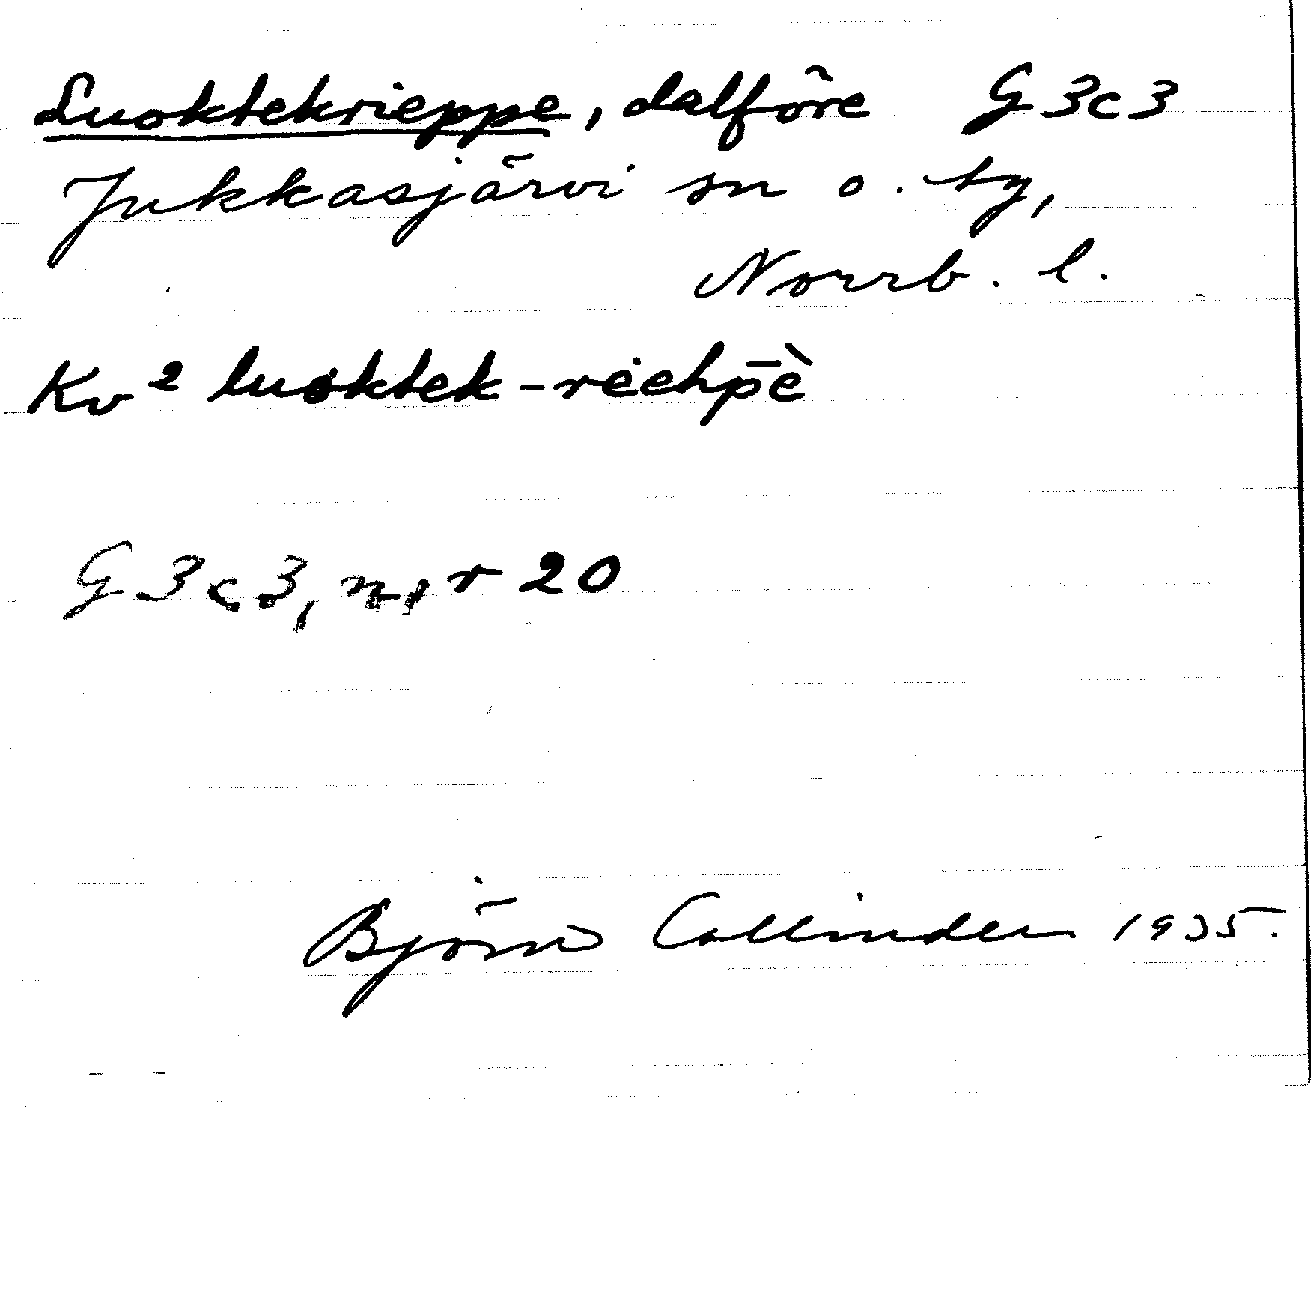 Luoktekrieppe, dalföre G3c3
Jukkasjärvi sn o. tg,
Norrb. l.
Kv² luoktek-rėehp̄è
G3c3, n, r 20
Björn Collinder 1935.